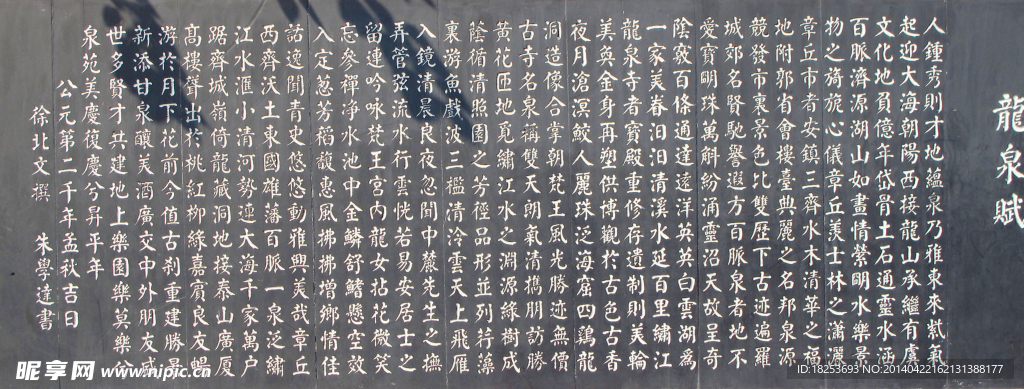 龍泉賦
人鍾秀則才地蘊泉乃雅東來紫氣
起迎大海朝陽西接龍山承繼有虞
文化地負億年岱骨土石通靈水涵
百脈濟源湖山如畫情縈明水樂景
物之旖旎心儀章丘羨士林之瀟灑
章丘市者安鎮三齊水木清華之福
地附郭省會樓臺典麗之名邦泉源
競發市裏景色比雙歷下古迹遍羅
城郊名賢馳譽遐方百脈泉者地不
愛寶明珠萬斛紛涌靈沼天故呈奇
陰敦百條通達遠洋英英白雲湖為
一家美眷汩汩清溪水延百里繡江
龍泉寺者寶殿重修存遺制則美輪
美奐金身再塑供博觀於古色古香
夜月滄溟鮫人麗珠泛海窟四鷄龍
洞造像合掌朝梵王風光勝迹無價
古寺名泉稱雙天朗氣清携朋訪勝
黃花匝地覓繡江水之淵源緑樹成
蔭循清照園之芳徑品形並列荇藻
裏游魚戲波三檻清泠雲天上飛雁
入鏡清晨良夜忽聞中麓先生之撫
弄管弦流水行雲恍若易安居士之
留連吟咏梵王宮内龍女拈花微笑
忘參禪净水池中金鱗舒鰭懸空效
入定葱芳稻馥惠風拂拂增鄉情佳
話逸聞青史悠悠動雅興美哉章丘
西齊沃土東國雄藩百脈一泉泛瀾
江水滙小清河勢連大海千家萬户
踞齊城嶺倚龍藏洞地接泰山廣厦
高樓聳出於桃紅柳緑嘉賓良友暢
游於月下花前今值古刹重建勝景
新添甘泉釀美酒廣交中外朋友盛
世多賢才共建地上樂園樂莫樂兮
泉苑美慶復慶兮昇平年
公元第二千年孟秋吉日
徐北文撰 朱學達書
昵享网 www.nipic.cn
ID:18253693 NO:20140422162131388177